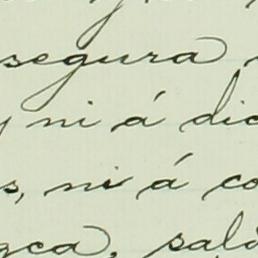 segura
ni á dic
s, ni á co
gca, saló